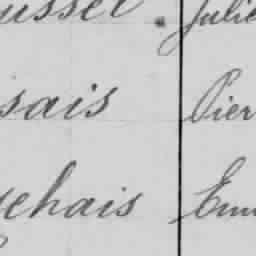 ussel. Julie
sais Pier
chais Emm